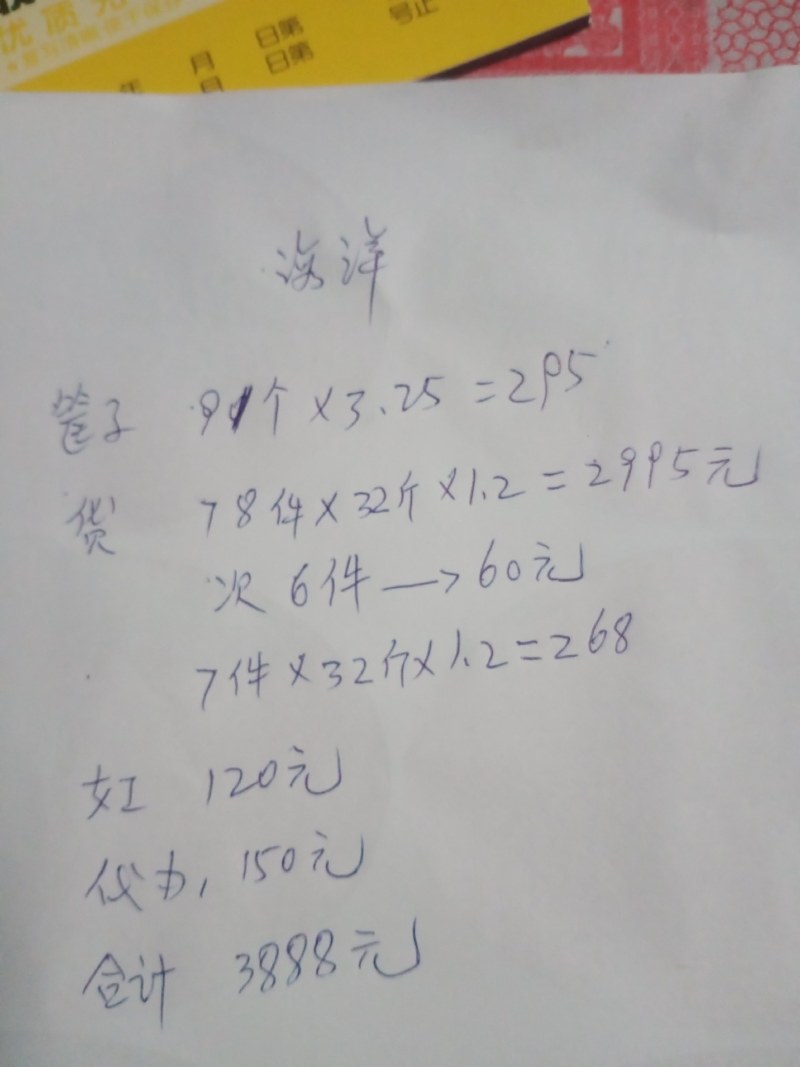 优质
年 月 日第 号止
月 日第
海洋
筐子 91个×3.25=295
货 78件×32斤×1.2=2995元
次6件→60元
7件×32斤×1.2=268
女工 120元
代办, 150元
合计 3888元